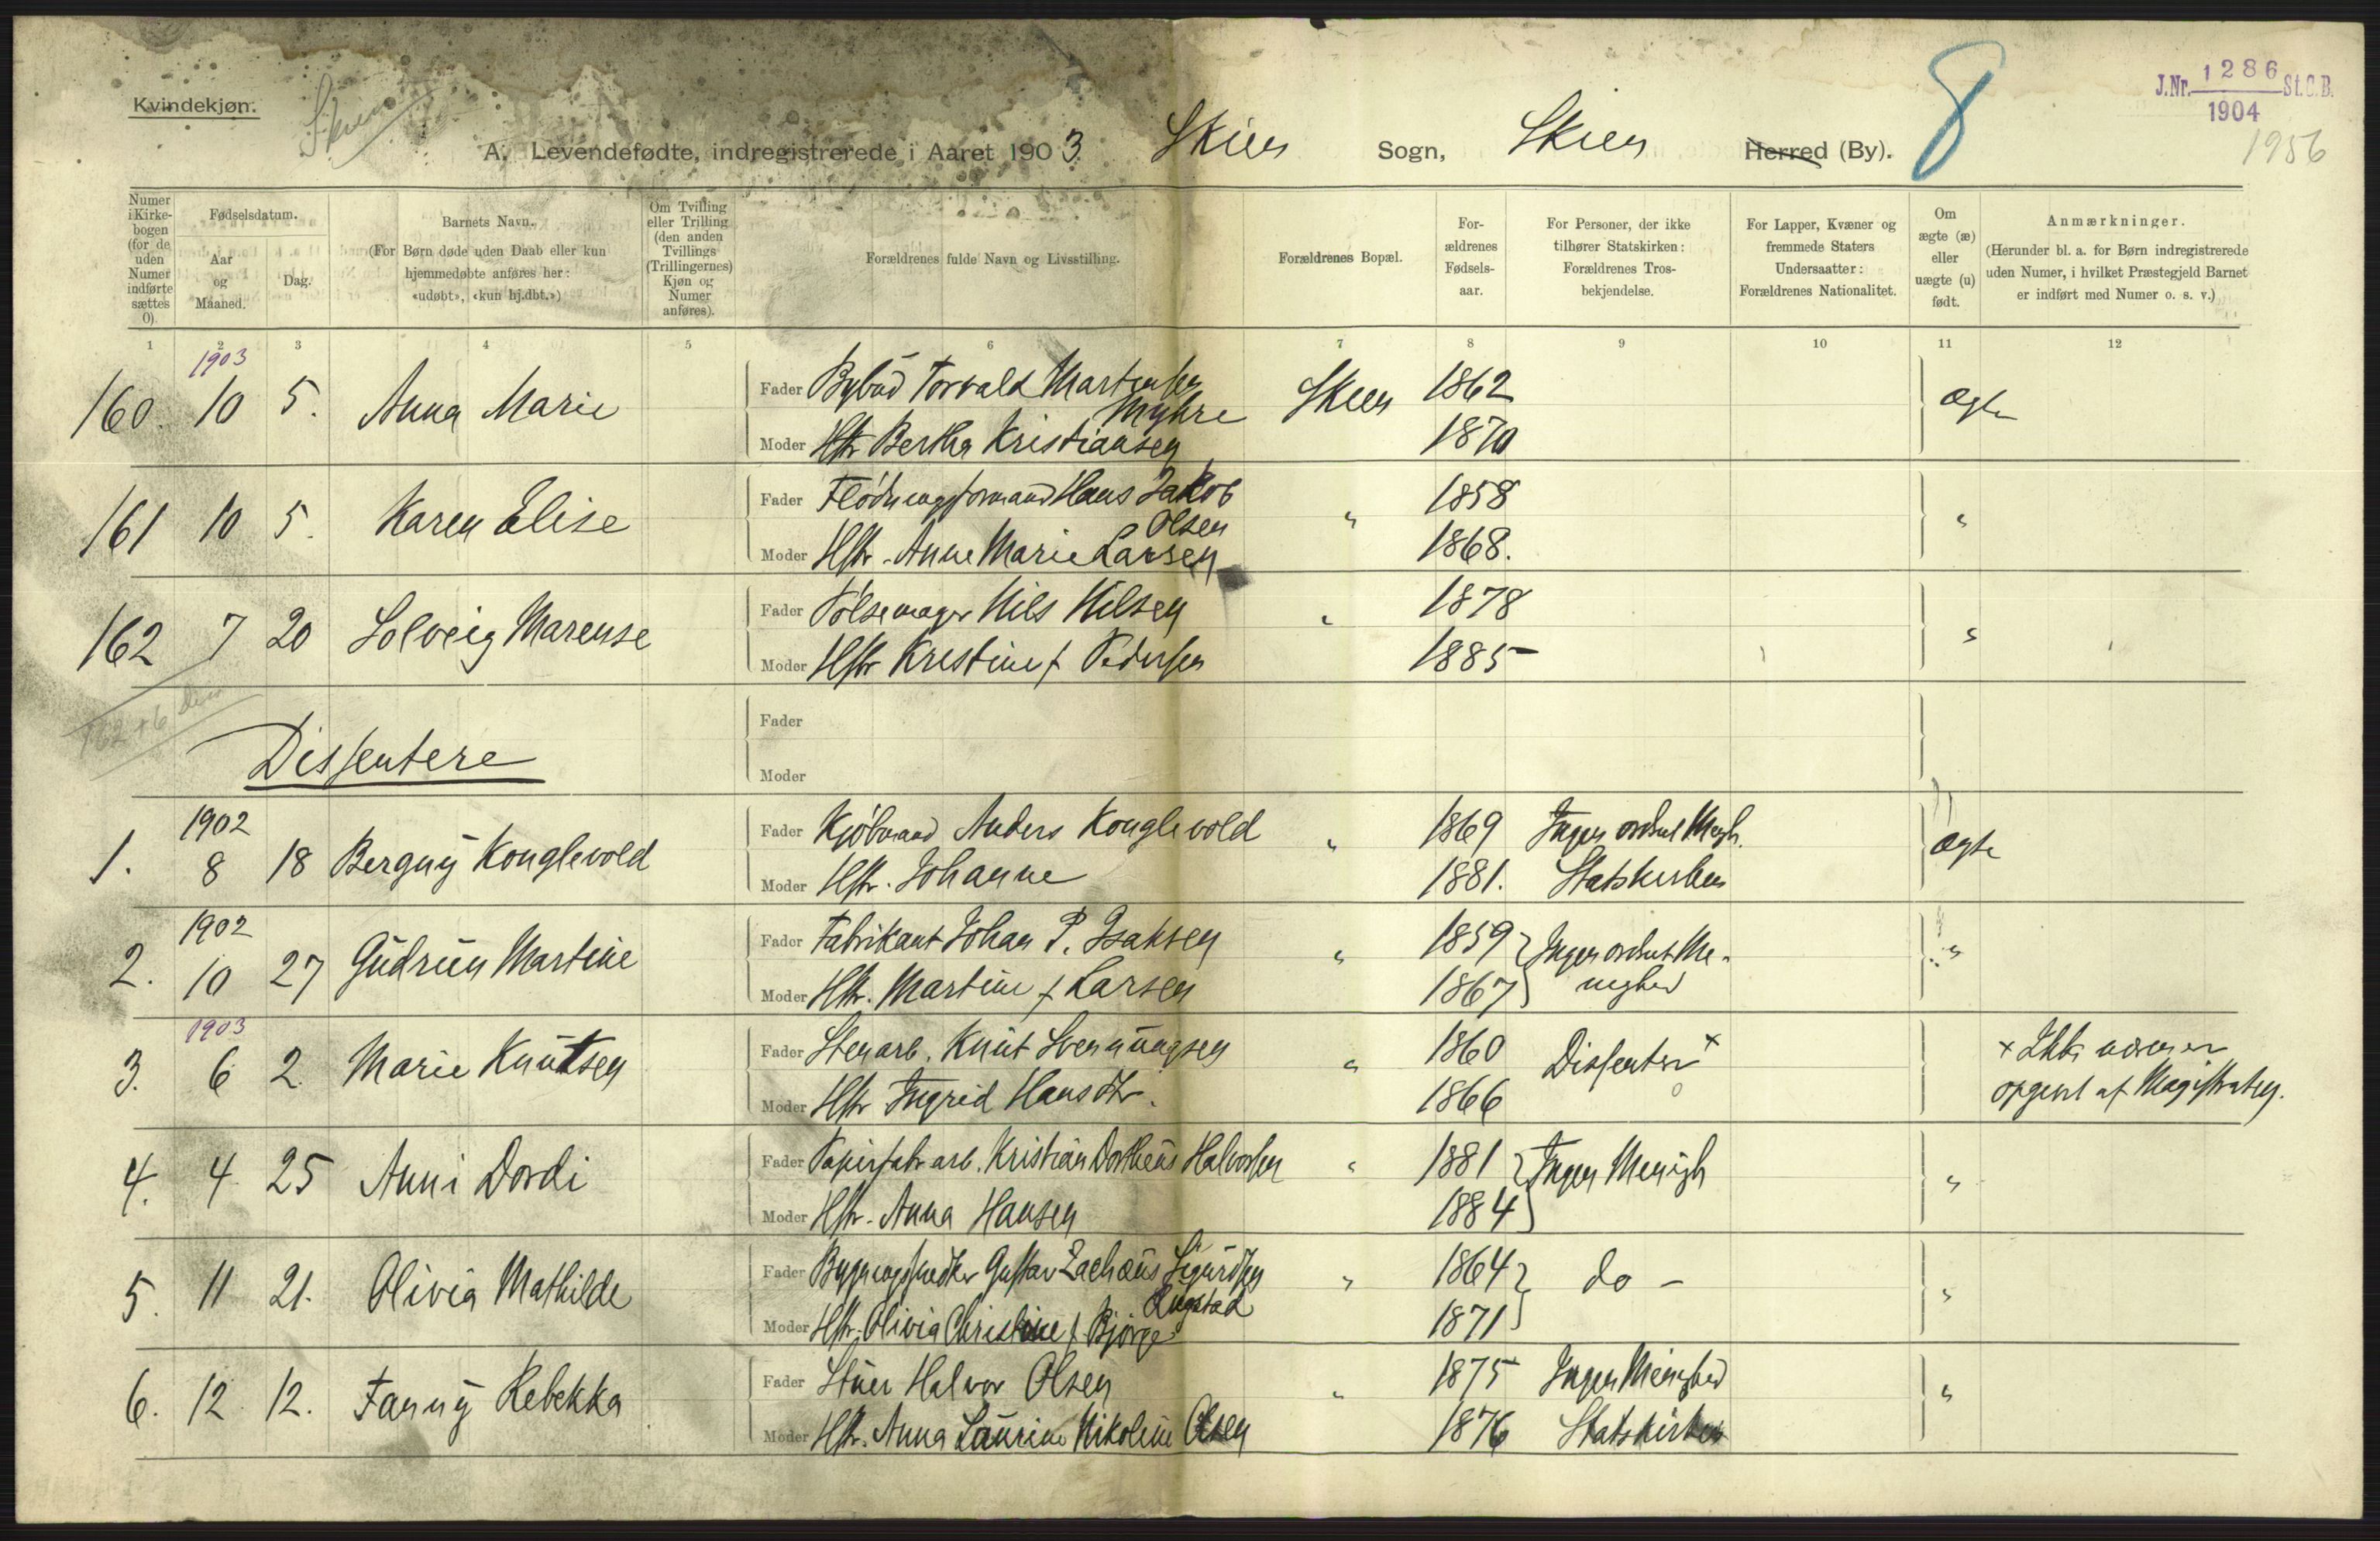 Kvindekjøn.
Skien
J.Nr. 1286 St.C.B.
1904
1956
8
A. Levendefødte, indregistrerede i Aaret 1903. Skien Sogn, Skien Herred (By).
Numer i Kirkebogen (for de uden Numer indførte sættes 0).
Fødselsdatum.
Aar og Maaned.
Dag.
Barnets Navn.
(For Børn døde uden Daab eller kun hjemmedøbte anføres her: «udøbt», «kun hj.dbt.»)
Om Tvilling eller Trilling (den anden Tvillings (Trillingernes) Kjøn og Numer anføres).
Forældrenes fulde Navn og Livsstilling.
Forældrenes Bopæl.
Forældrenes Fødselsaar.
For Personer, der ikke tilhører Statskirken: Forældrenes Trosbekjendelse.
For Lapper, Kvæner og fremmede Staters Undersaatter: Forældrenes Nationalitet.
Om ægte (æ) eller uægte (u) født.
Anmærkninger.
(Herunder bl. a. for Børn indregistrerede uden Numer, i hvilket Præstegjeld Barnet er indført med Numer o. s. v.)
1 2 3 4 5 6 7 8 9 10 11 12
1903
160. 10 5. Anna Marie Fader Bybud Torvald Martensen Myhre Skien 1862 ægte
Moder Hstr Bertha Kristiansen 1870
161 10 5. Karen Elise Fader Flødningsformand Hans Jakob Olsen " 1858 "
Moder Hstr. Anne Marie Larsen 1868.
162 7 20 Solveig Marense Fader Pølsemager Nils Nilsen " 1878 "
Moder Hstr Kristine f Pedersen 1885
162+6 diss
Dissentere
Fader
Moder
1902
1. 8 18 Bergny Konglevold Fader Kjøbmand Anders Konglevold " 1869 Ingen ordnet Megh. ægte
Moder Hstr. Johanne 1881. Statskirken
1902
2. 10 27 Gudrun Martine Fader Fabrikant Johan P. Isaksen " 1859 Ingen ordnet Me- "
Moder Hstr. Martine f Larsen 1867 nighed
1903
3. 6 2. Marie Knutsen Fader Stenarb. Knut Svennungsen " 1860 Dissenter x x Ikke nærmere
Moder Hstr Ingrid Hansdtr. 1866 opgivet af Magistraten.
4. 4 25 Anni Dordi Fader Papirfabr arb. Kristian Dortheus Halvorsen " 1881 Ingen Menigh "
Moder Hstr. Anna Hansen 1884
5. 11 21. Olivia Mathilde Fader Bygningssnedker Gustav Zachæus Sigurdsen Ringstad " 1864 do - "
Moder Hstr. Olivia Christine f Bjørge 1871
6. 12 12. Fanny Rebekka Fader Stuer Halvor Olsen " 1875 Ingen Menighed "
Moder Hstr. Anna Laurine Nikoline Olsen 1876 Statskirken